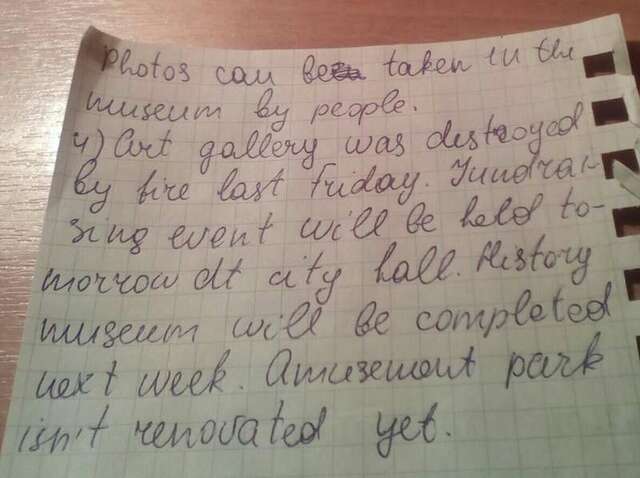 photos can be taken in the
museum by people.
4) Art gallery was destroyed
by fire last Friday. Fundrai-
sing event will be held to-
morrow at city hall. History
museum will be completed
next week. Amusement park
isn't renovated yet.